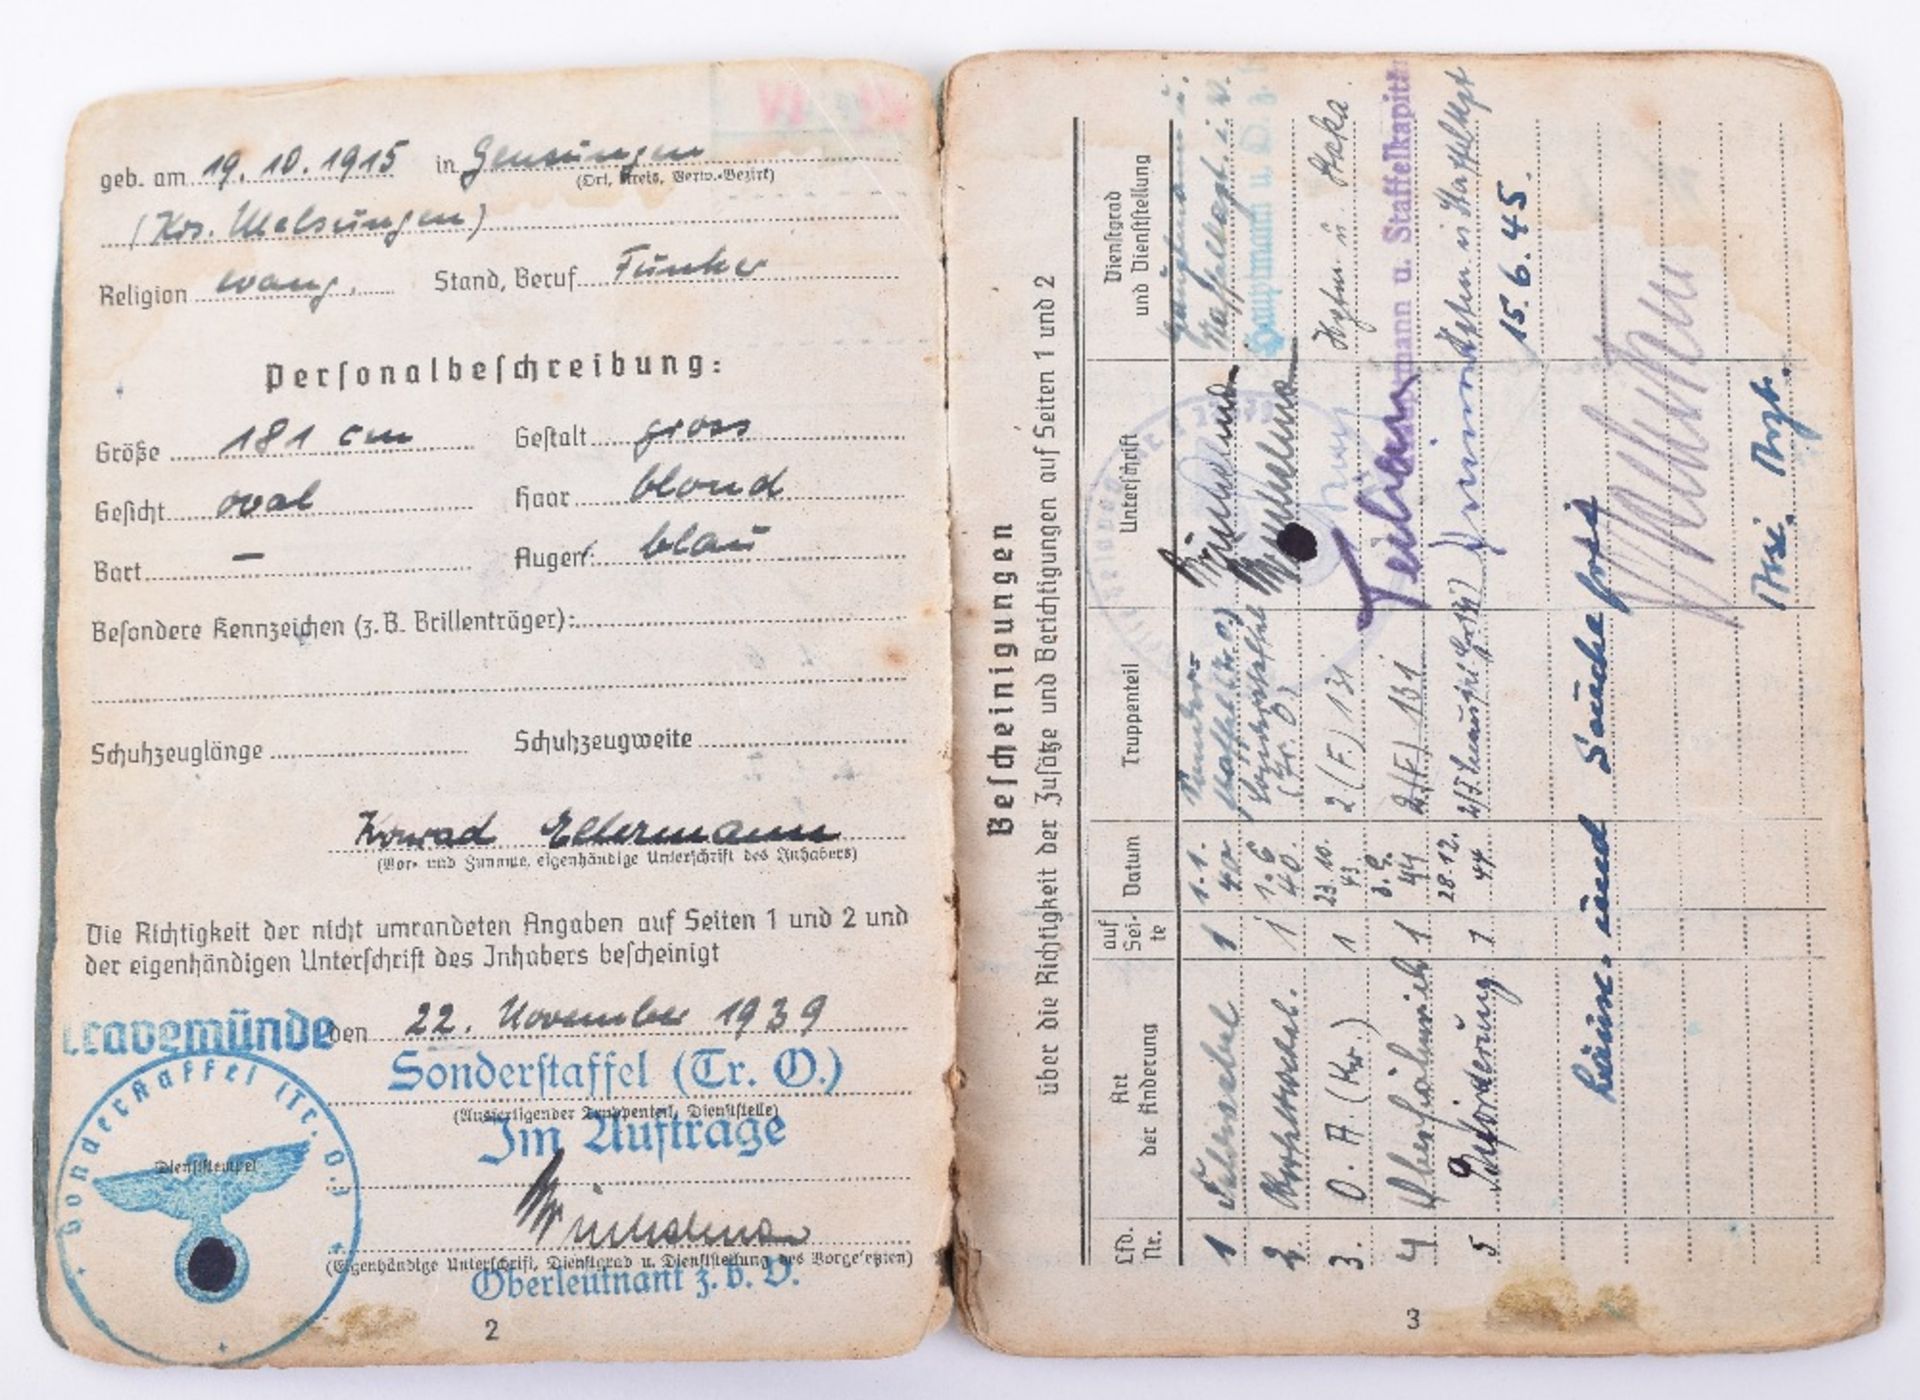 geb. am 19. 10. 1915 in Gensungen
(Ort, Kreis, Verw.-Bezirk)
(Krs. Melsungen)
Religion evang. Stand, Beruf Funker
Personalbeschreibung:
Größe 181 cm Gestalt gross
Gesicht oval Haar blond
Bart — Augen blau
Besondere Kennzeichen (z. B. Brillenträger):
Schuhzeuglänge Schuhzeugweite
Konrad Ellermann
(Vor- und Zuname, eigenhändige Unterschrift des Inhabers)
Die Richtigkeit der nicht umrandeten Angaben auf Seiten 1 und 2 und
der eigenhändigen Unterschrift des Inhabers bescheinigt
Travemünde den 22. November 1939
Sonderstaffel (Tr. O.)
(Ausfertigender Truppenteil, Dienststelle)
Im Auftrage
Sonderstaffel (Tr. O.)
Dienststempel
(Eigenhändige Unterschrift, Dienstgrad u. Dienststellung des Vorgesetzten)
Oberleutnant z. b. V.
2
Bescheinigungen
über die Richtigkeit der Zusätze und Berichtigungen auf Seiten 1 und 2
Lfd. Nr. Art der Änderung auf Seite Datum Truppenteil Unterschrift Dienstgrad und Dienststellung
1 Feldwebel 1 1.1. 40 Sonderstaffel (Tr. O.) Hauptmann u. Staffelkapt. i. V.
2. 1 1.6 40. Sonderstaffel (Tr. O.) Hauptmann u.
3. O. A. (Kr.) 1 23.10. 43 2 (F.) 131 Hptm. u. Staka.
4 Oberfähnrich 1 3.9. 44 2 (F) 131 Hauptmann u. Staffelkapitän
5 Beförderung 1 28.12. 44 Hptm. u. Staffelkpt
15. 6. 45.
und
Arzt.
3